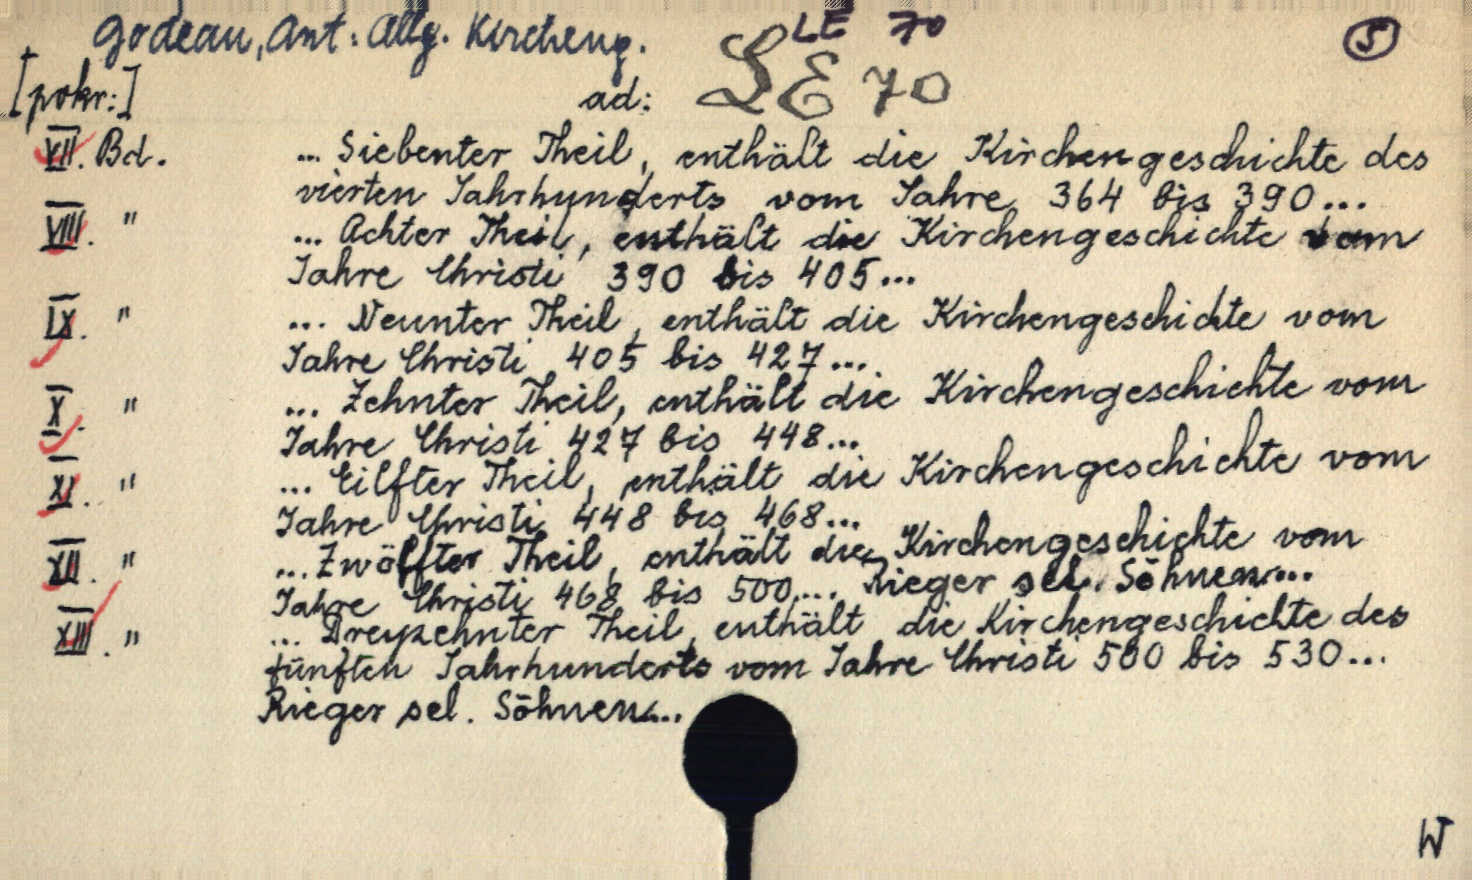 Godeau, Ant: Allg. Kircheng. LE 70 5
[pokr:] ad: LE 70
VII. Bd. ... Siebenter Theil, enthält die Kirchengeschichte des
vierten Jahrhunderts vom Jahre 364 bis 390...
VIII. " ... Achter Theil, enthält die Kirchengeschichte vom
Jahre Christi 390 bis 405...
IX. " ... Neunter Theil, enthält die Kirchengeschichte vom
Jahre Christi 405 bis 427...
X. " ... Zehnter Theil, enthält die Kirchengeschichte vom
Jahre Christi 427 bis 448...
XI. " ... Eilfter Theil, enthält die Kirchengeschichte vom
Jahre Christi 448 bis 468...
XII. " ... Zwölffter Theil, enthält die Kirchengeschichte vom
Jahre Christi 468 bis 500... Rieger sel. Söhnen...
XIII. " ... Dreyzehnter Theil, enthält die Kirchengeschichte des
fünften Jahrhunderts vom Jahre Christi 500 bis 530...
Rieger sel. Söhnen...
W